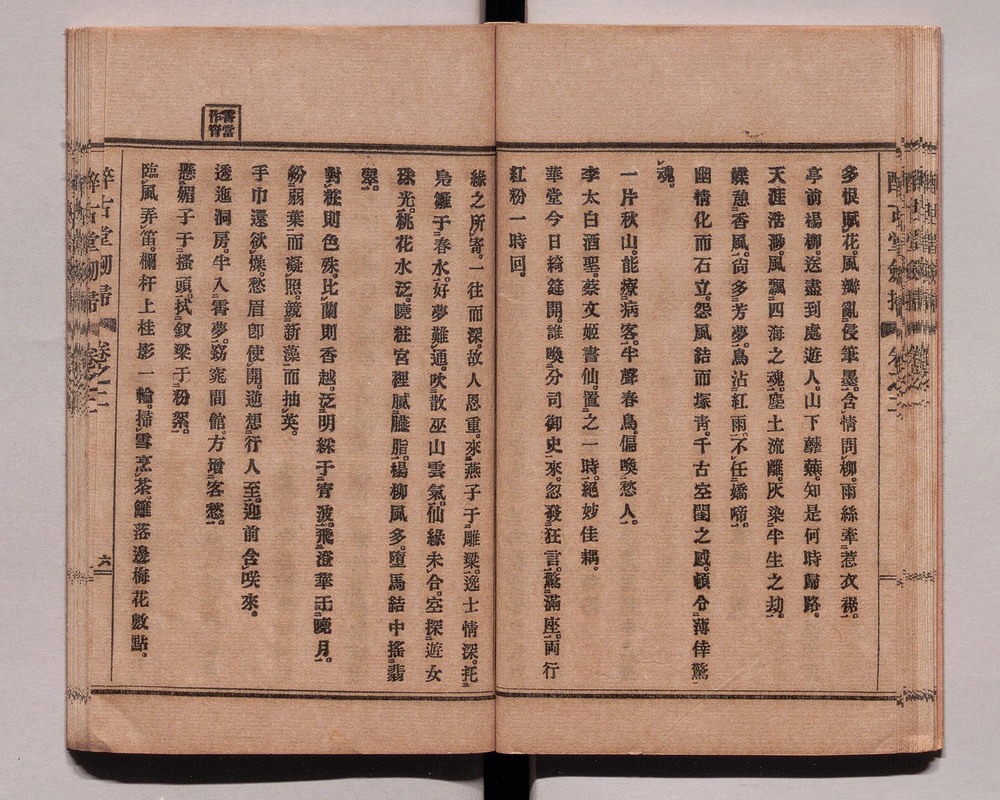 多恨賦花。風瓣亂侵筆墨。含情問柳。雨絲牽惹衣裾。
亭前楊柳。送盡到處遊人。山下蘼蕪。知是何時歸路。
天涯浩渺。風飄四海之魂。塵土流離。灰染半生之劫。
蝶憩香風。尚多芳夢。鳥沾紅雨。不任嬌啼。
幽情化而石立。怨風結而塚青。千古空閨之感。頓令薄倖驚
魂。
一片秋山。能療病客。半聲春鳥。偏喚愁人。
李太白酒聖。蔡文姬書仙。置之一時。絕妙佳耦。
華堂今日綺筵開。誰喚分司御史來。忽發狂言驚滿座。兩行
紅粉一時回。
緣之所寄。一往而深。故人恩重。來燕子于雕梁。逸士情深。托
鳧雛于春水。好夢難通。吹散巫山雲氣。仙緣未合。空探遊女
珠光。桃花水泛。曉粧宮裡膩臙脂。楊柳風多。墮馬結中搖翡
翠。
對粧則色殊。比蘭則香越。泛明綵于宵波。飛澄華于曉月。
紛弱葉而凝照。競新藻而抽英。
手巾還欲燥。愁眉即使開。逆想行人至。迎前含咲來。
逶迤洞房。半入霄夢。窈窕間館。方增客愁。
懸媚子于搔頭。拭釵梁于粉絮。
臨風弄笛。欄杆上桂影一輪。掃雪烹茶。籬落邊梅花數點。
霄當
作宵
醉古堂劒掃
卷之二
六